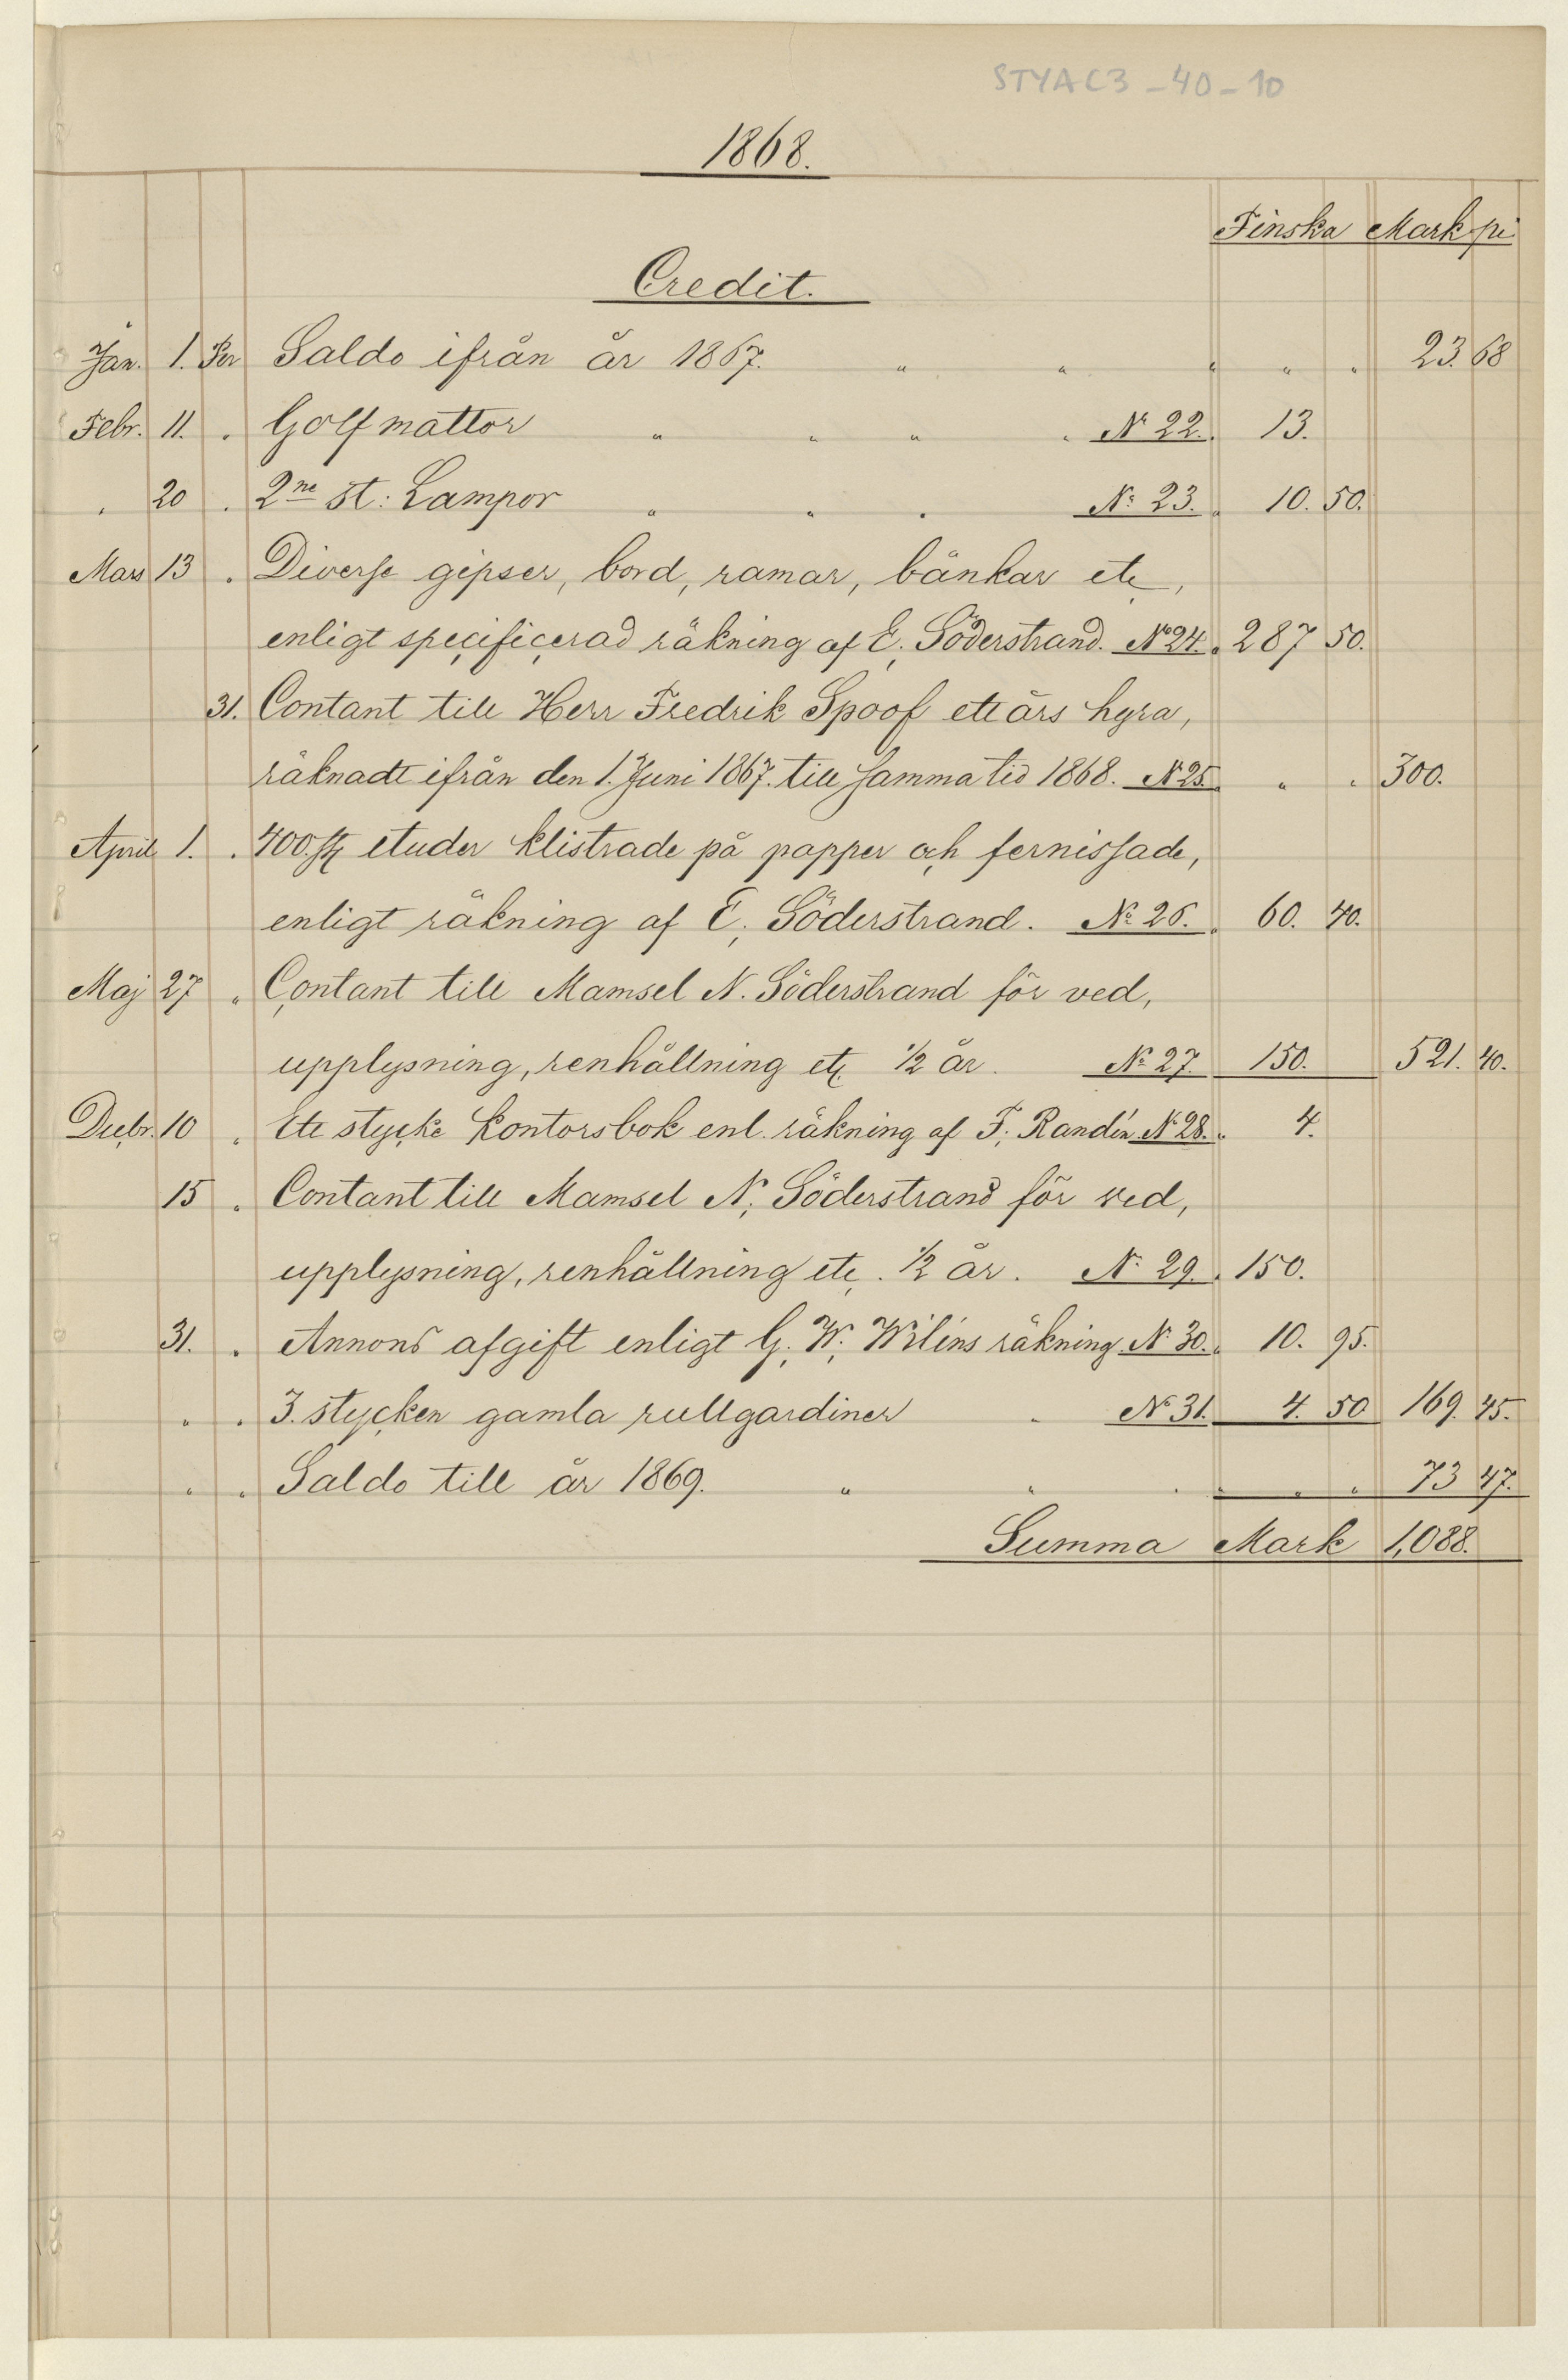 STYAC3-40-10
1868.
Finska Mark pi
Credit.
Jan. 1. Per Saldo ifrån år 1867. " " " " " 23. 68
Febr. 11. " Golfmattor " " " " N° 22. 13.
" 20 " 2ne st: Lampor " " " N° 23. " 10. 50.
Mars 13 " Diverse gipser, bord, ramar, bänkar etc,
enligt specificerad räkning af E. Söderstrand. N° 24. " 287 50.
31. Contant till Herr Fredrik Spoof ett års hyra,
räknadt ifrån den 1. Juni 1867. till samma tid 1868. N° 25. " " 300.
April 1. " 400. st etuder klistrade på papper och fernissade,
enligt räkning af E. Söderstrand. N° 26. " 60. 40.
Maj 27 " Contant till Mamsel N. Söderstrand för ved,
upplysning, renhållning etc. 1/2 år. N° 27. 150. 521. 40.
Decbr. 10 " Ett stycke Kontorsbok enl. räkning af F. Randín N° 28. " 4.
15 " Contant till Mamsel N. Söderstrand för ved,
upplysning, renhållning etc. 1/2 år. N° 29. " 150.
31. " Annons afgift enligt G. W. Wiléns räkning. N° 30. " 10. 95.
" " 3. stycken gamla rullgardiner " N° 31. 4. 50 169. 45.
" " Saldo till år 1869. " " " " " " 73 47.
Summa Mark 1,088.